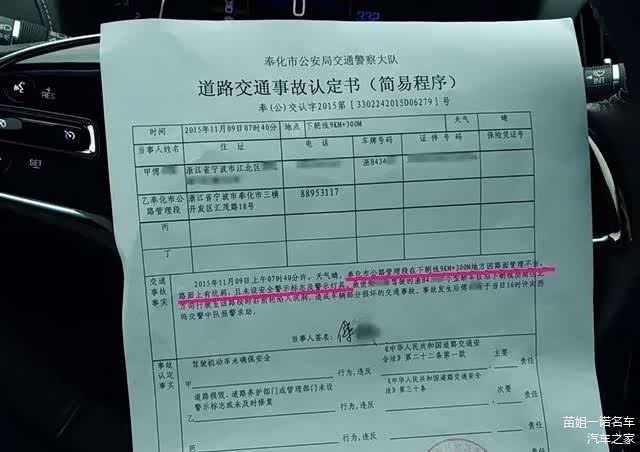 332
RES
SET
奉化市公安局交通警察大队
道路交通事故认定书（简易程序）
奉(公)交认字2015第 [ 3302242015D06279 ] 号
时间 2015年11月09日07时40分 地点 下朝线9KM+300M 天气 晴
当事人姓名 住 址 电 话 车牌号码 证 件 号 码 保险凭证号
甲傅 浙江省宁波市江北区 浙B434
乙奉化市公路管理段 浙江省宁波市奉化市三横开发区汇茂路18号 88953117
丙
丁
交通事故事实
2015年11月09日上午07时40分许，天气晴，奉化市公路管理段在下朝线9KM+300M地方因路面管理不当，
路面上有坑洞，且未设安全警示标志及警示灯具，致使 驾驶的浙B4
方向行驶至该路段时右前轮陷入坑洞，造成车辆部分损坏的交通事故。事故发生后傅 于当日16时许向西
坞交警中队报警求助。
当事人签名：
事故认定事实
甲 驾驶机动车未确保安全 行为,违反 《中华人民共和国道路交通安全法》第二十二条第一款 主要 责任
乙 道路损毁、道路养护部门或管理部门未设警示标志或未及时修复 行为,违反 《中华人民共和国道路交通安全法》第三十条 次要 责任
丙 行为,违反 责任
苗姐一诺名车
汽车之家